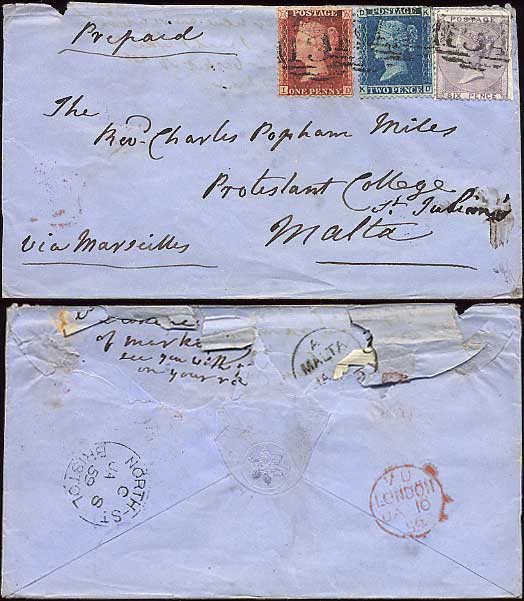 Prepaid
POSTAGE
ONE PENNY
POSTAGE
TWO PENCE
POSTAGE
SIX PENCE
The
Revd. Charles Popham Miles
Protestant College
St Julian's
Malta
via Marseilles
of marke
see you with
on your
A
MALTA
NORTH-ST
C
JA 8
59
BRISTOL
LONDON